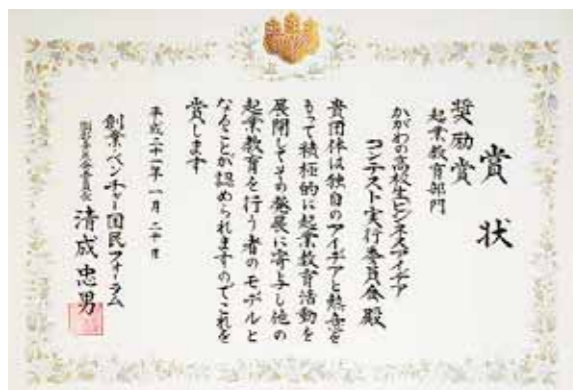 賞状
奨励賞
起業教育部門
かがわの高校生ビジネスアイデア
コンテスト実行委員会殿
貴団体は独自のアイデアと熱意を
もって積極的に起業教育活動を
展開してその発展に寄与し他の
起業教育を行う者のモデルと
なることが認められますのでこれを
賞します
平成二十一年一月二十日
創業・ベンチャー国民フォーラム
委員長 清成忠男